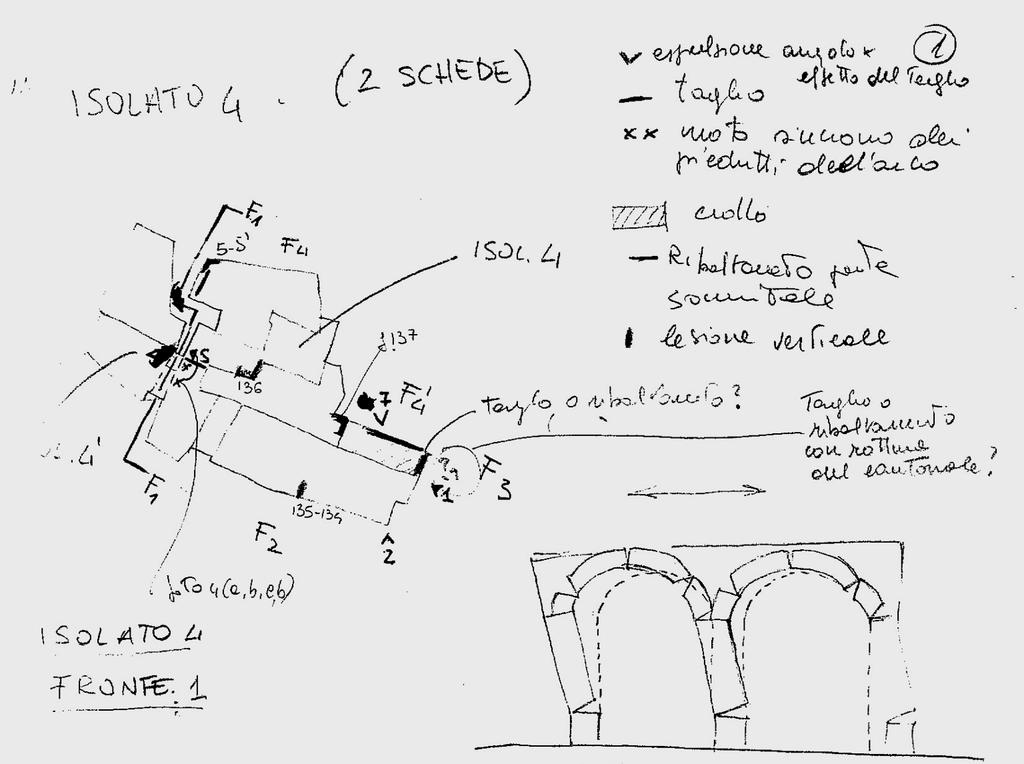 1
ISOLATO 4
(2 SCHEDE)
espulsione angolo x
effetto del Taglio
taglio
xx moto sincrono dei
piedritti dell'arco
crollo
Ribaltamento parte
sommitale
lesione verticale
F1
5-5'
F4
ISOL. 4
f.137
5
136
7
F4'
taglio o ribaltamento?
Taglio o
ribaltamento
con rottura
del cantonale?
4'
F1
F3
1
135-134
F2
2
foto 4(a,b,e,b)
ISOLATO 4
FRONTE.1